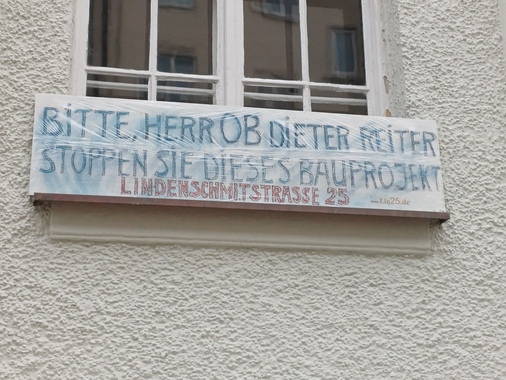 BITTE, HERR OB DIETER REITER
STOPPEN SIE DIESES BAUPROJEKT
LINDENSCHMITSTRASSE 25
www.Lia25.de